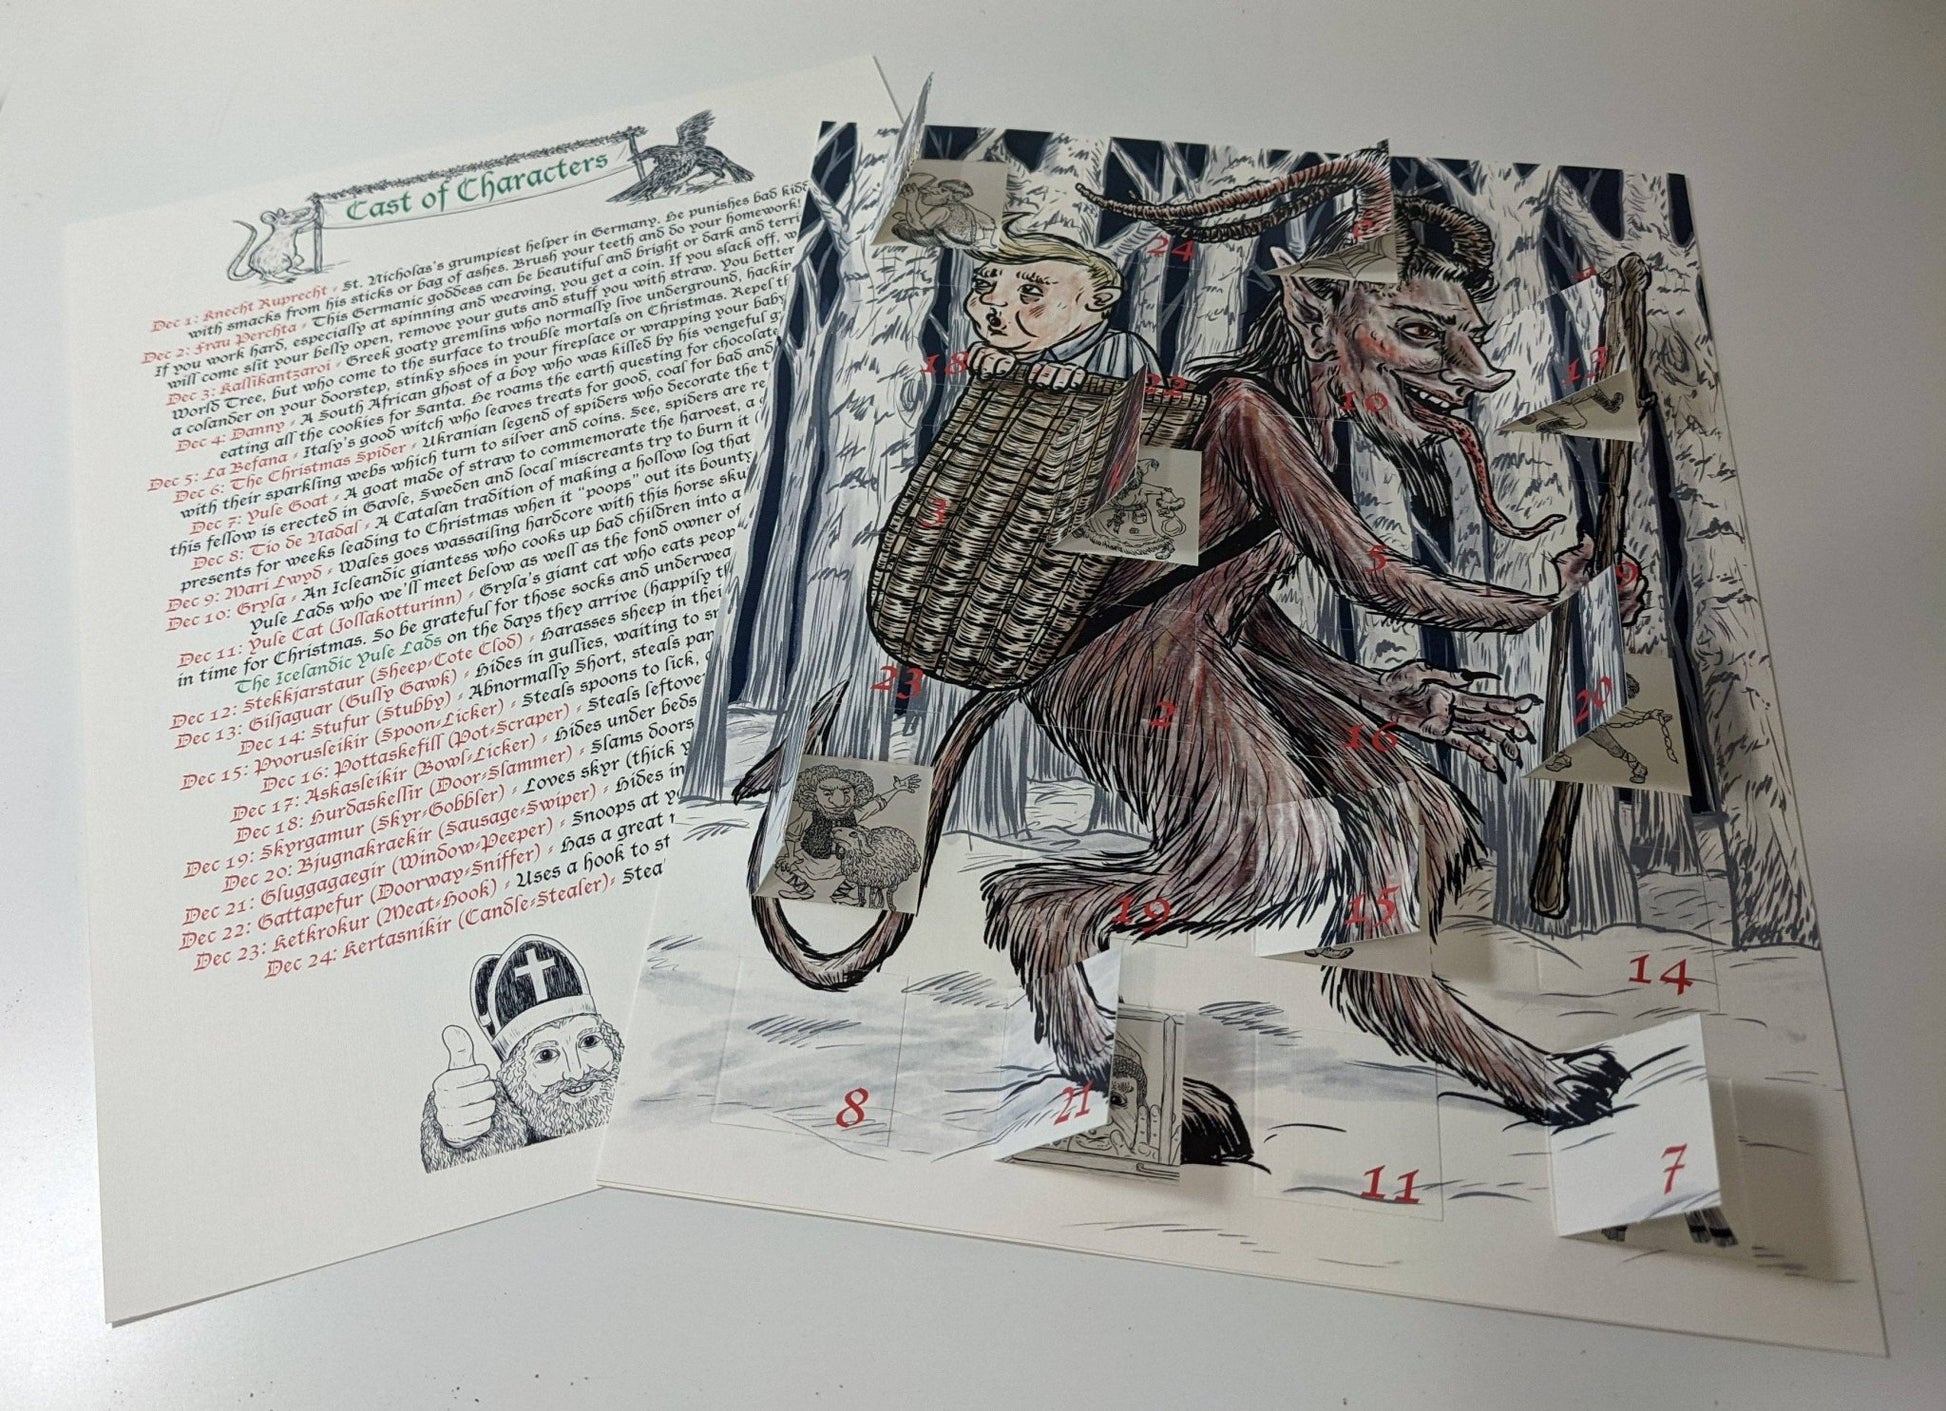 Cast of Characters
Dec 1: Knecht Ruprecht - St. Nicholas's grumpiest helper in Germany. He punishes bad kids
with smacks from his sticks or bag of ashes. Brush your teeth and do your homework!
Dec 2: Frau Perchta - This Germanic goddess can be beautiful and bright or dark and terri
If you work hard, especially at spinning and weaving, you get a coin. If you slack off, w
will come slit your belly open, remove your guts and stuff you with straw. You better
Dec 3: Kallikantzaroi - Greek goaty gremlins who normally live underground, hackin
World Tree, but who come to the surface to trouble mortals on Christmas. Repel th
a colander on your doorstep, stinky shoes in your fireplace or wrapping your baby
Dec 4: Danny - A South African ghost of a boy who was killed by his vengeful g
eating all the cookies for Santa. He roams the earth questing for chocolate
Dec 5: La Befana - Italy's good witch who leaves treats for good, coal for bad and
Dec 6: The Christmas Spider - Ukranian legend of spiders who decorate the t
with their sparkling webs which turn to silver and coins. See, spiders are re
Dec 7: Yule Goat - A goat made of straw to commemorate the harvest, a
this fellow is erected in Gavle, Sweden and local miscreants try to burn it
Dec 8: Tio de Nadal - A Catalan tradition of making a hollow log that
presents for weeks leading to Christmas when it "poops" out its bounty
Dec 9: Mari Lwyd - Wales goes wassailing hardcore with this horse sku
Dec 10: Gryla - An Icleandic giantess who cooks up bad children into a
Yule Lads who we'll meet below as well as the fond owner of
Dec 11: Yule Cat (Jollakotturinn) - Gryla's giant cat who eats peop
in time for Christmas. So be grateful for those socks and underwea
The Icelandic Yule Lads on the days they arrive (happily th
Dec 12: Stekkjarstaur (Sheep-Cote Clod) - Harasses sheep in thei
Dec 13: Giljaguar (Gully Gawk) - Hides in gullies, waiting to sn
Dec 14: Stufur (Stubby) - Abnormally short, steals pan
Dec 15: Pvorusleikir (Spoon-Licker) - Steals spoons to lick,
Dec 16: Pottaskefill (Pot-Scraper) - Steals leftove
Dec 17: Askasleikir (Bowl-Licker) - Hides under beds
Dec 18: Hurdaskellir (Door-Slammer) - Slams doors
Dec 19: Skyrgamur (Skyr-Gobbler) - Loves skyr (thick y
Dec 20: Bjugnakraekir (Sausage-Swiper) - Hides in
Dec 21: Gluggagaegir (Window-Peeper) - Snoops at y
Dec 22: Gattapefur (Doorway-Sniffer) - Has a great
Dec 23: Ketkrokur (Meat-Hook) - Uses a hook to st
Dec 24: Kertasnikir (Candle-Stealer)- Stea
24
13
18
22
10
3
5
9
23
2
16
20
19
15
14
8
21
11
7